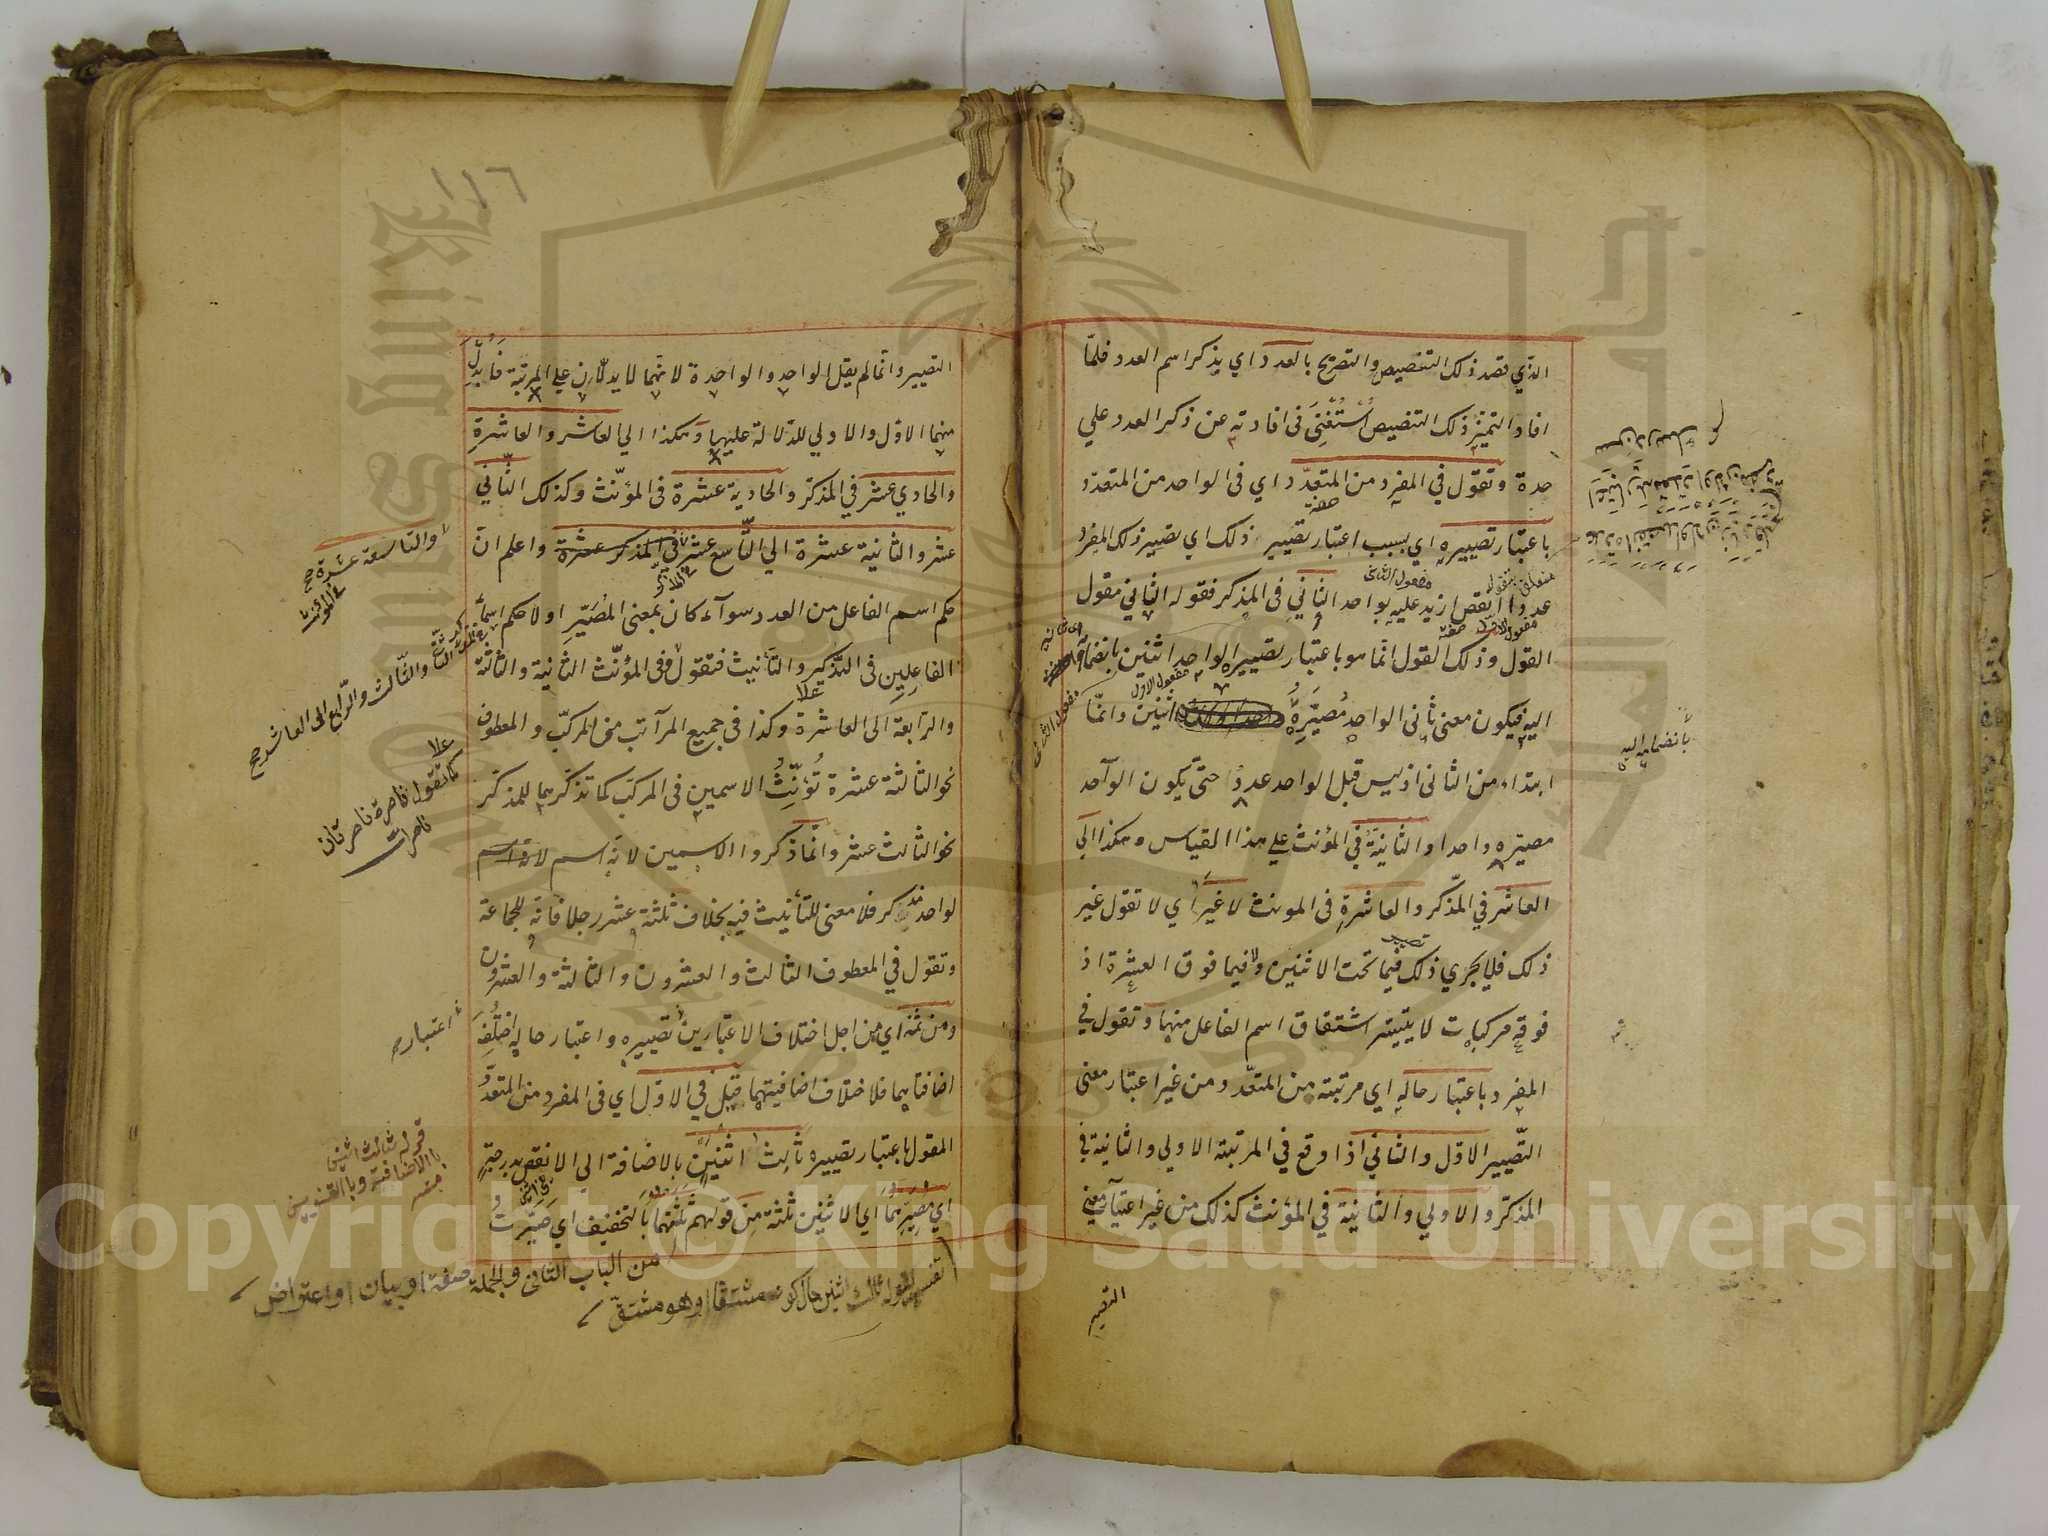 الذي قصد ذلك التنصيص والتصريح بالعدد اي يذكر اسم العدد فلمّا
افاد التمييز ذلك التنصيص اُستُغْنِيَ فى افادته عن ذكر العدد علي
حدة وتقول في المفرد من المتعدّد اي فى الواحد من المتعدّد
باعتبار تصييره اي بسبب اعتبار تصيير ذلك اي تصيير ذلك المفرد
عددا انقص ازيد عليه بواحد الثاني فى المذكر فقوله الثاني مقول
القول وذلك القول انما هو باعتبار تصييره الواحد اثنين بانضمامه
اليه فيكون معنى ثانى الواحد مُصَيِّرِهُ اثنين وانمّا
ابتداء من الثانى اذ ليس قبل الواحد عدد حتىّ يكون الوآحد
مصيّره واحدا والثانيةُ في المؤنث علي هذا القياس وهكذا الي
العاشر في المذّكر والعاشرة فى المونث لا غير اي لا تقول غير
ذلك فلا يجري ذلك فيما تحت الاثنين ولا فيما فوق العشرة اذ
فوقه مركبات لا يتيسر اشتقاق اسم الفاعل منهما وتقول في
المفرد باعتبار حاله اي مرتبته من المتعدّد من غير اعتبار معنى
التّصيير الاوّل والثاني اذا وقع في المرتبة الاولي والثانية فى
المذكرّ والاولي والثانية في المؤنث كذلك من غير اعتبار معنى
التصيير
بانضمامه اليه
متعلق بتقول
مفعول الثاني
مفعول الاول
صفة
١١٦
التصيير وانّما لم يقل الواحد والواحدة لانّهما لا يدلّان علي المرتبة فاُبدِلَ
منهما الاوّل والاولي للدّلالة عليها وهكذا الي العاشر والعاشرة
والحادي عشر في المذكرّ والحادية عشرة فى المؤنّث وكذلك الثّاني
عشر والثانية عشرة الي التّاسع عشر فى المذكر عشرة واعلم انّ
حكم اسم الفاعل من العدد سوآء كان بمعنى المُصَيِّرِ او لا حكم اسمآء
الفاعلِينِ فى التذكير والتأنيث فتقول فى المؤنّث الثانية والثالثة
والرابعة الى العاشرة وكذا في جميع المرآتب من المركّب والمعطوف
نحو الثالثة عشرة تُؤنّثُ الاسمين فى المركب كما تذكّرهما للمذكّر
نحو الثالث عشر وانّما ذكروا الاسمين لانّه اسم لانه اسم
لواحد مذكر فلا معنى للتأنيث فيه بخلاف ثلثة عشر رجلا فانّه للجماعة
وتقول في المعطوف الثالث والعشرون والثالثة والعشرون
ومن ثمّه اي من اجل اختلاف الاعتبارين تصييره واعتبار حاله اختُلِفَ
اضافتاهما فلاختلاف اضافيتهما قيل في الاوّل اي فى المفرد من المتعدّد
المقول باعتبار تصييره ثالِثُ اثنين بالاضافة الي الانقص بدرجة
اي مصيّرهما اي الاثنين ثلثة مِن قولهم ثلثتهما بالتخفيف اي صيّرتُ
من الباب الثانى والجملة صفة او بيان او اعتراض
والتاسعة عشرة صح
في المؤنث
والثالث والرابع الى العاشر صح
كما تقول ناصرة ناصرتان
ناصرات
اعتباره
قوله ثالث اثنين
بالاضافة وبالتنوين
منه